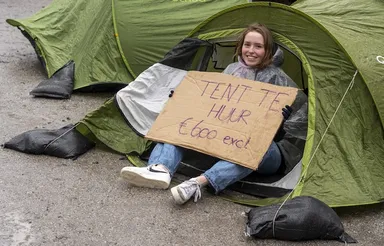 TENT TE
HUUR
€600 excl